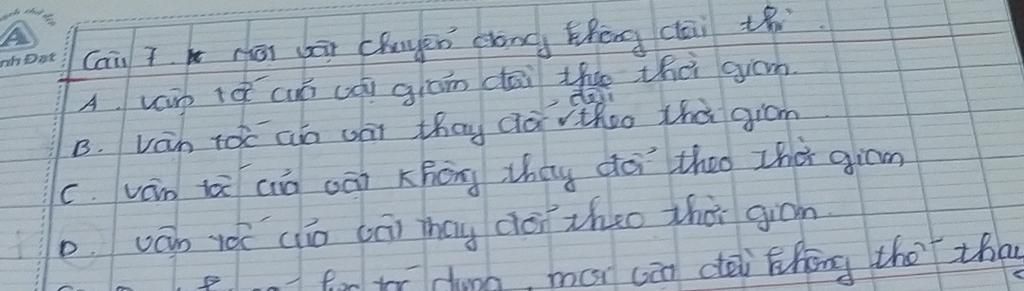 Câu 7. một vật chuyển động không đều thì
A. vận tốc của vật giảm dần theo thời gian
B. vận tốc của vật thay đổi đều theo thời gian
C. vận tốc của vật không thay đổi theo thời gian
D. vận tốc của vật thay đổi theo thời gian
dụng, mọi vật đều không thể thay